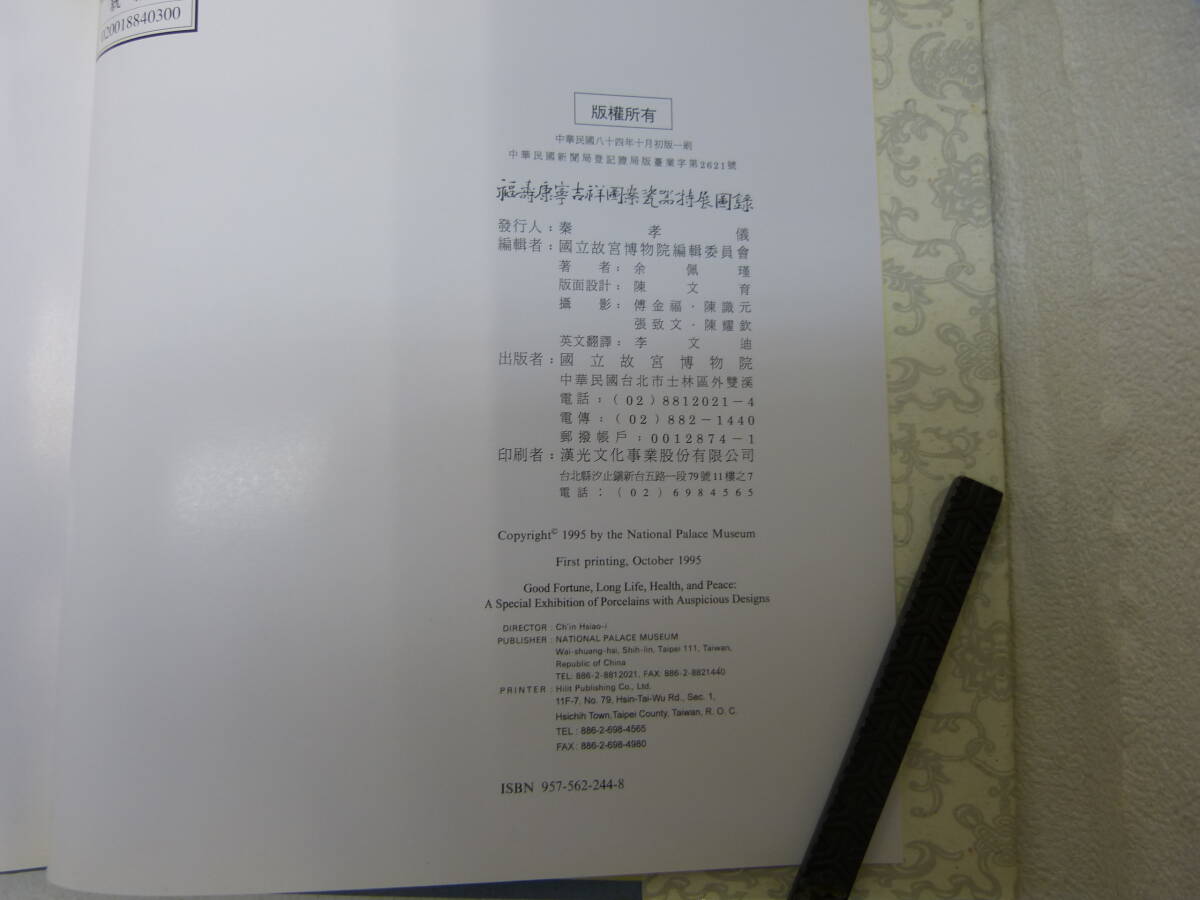 020018840300
版權所有
中華民國八十四年十月初版一刷
中華民國新聞局登記證局版臺業字第2621號
福壽康寧吉祥圖案瓷器特展圖錄
發行人：秦孝儀
編輯者：國立故宮博物院編輯委員會
著者：余佩瑾
版面設計：陳文育
攝影：傅金福·陳識元
張致文·陳耀欽
英文翻譯：李文迪
出版者：國立故宮博物院
中華民國台北市士林區外雙溪
電話：(02)8812021-4
電傳：(02)882-1440
郵撥帳戶：0012874-1
印刷者：漢光文化事業股份有限公司
台北縣汐止鎮新台五路一段79號11樓之7
電話：(02)6984565
Copyright© 1995 by the National Palace Museum
First printing, October 1995
Good Fortune, Long Life, Health, and Peace:
A Special Exhibition of Porcelains with Auspicious Designs
DIRECTOR : Ch'in Hsiao-i
PUBLISHER : NATIONAL PALACE MUSEUM
Wai-shuang-hsi, Shih-lin, Taipei 111, Taiwan,
Republic of China
TEL: 886-2-8812021, FAX: 886-2-8821440
PRINTER : Hilit Publishing Co., Ltd.
11F-7, No. 79, Hsin-Tai-Wu Rd., Sec. 1,
Hsichih Town, Taipei County, Taiwan, R. O. C.
TEL : 886-2-698-4565
FAX : 886-2-698-4980
ISBN 957-562-244-8